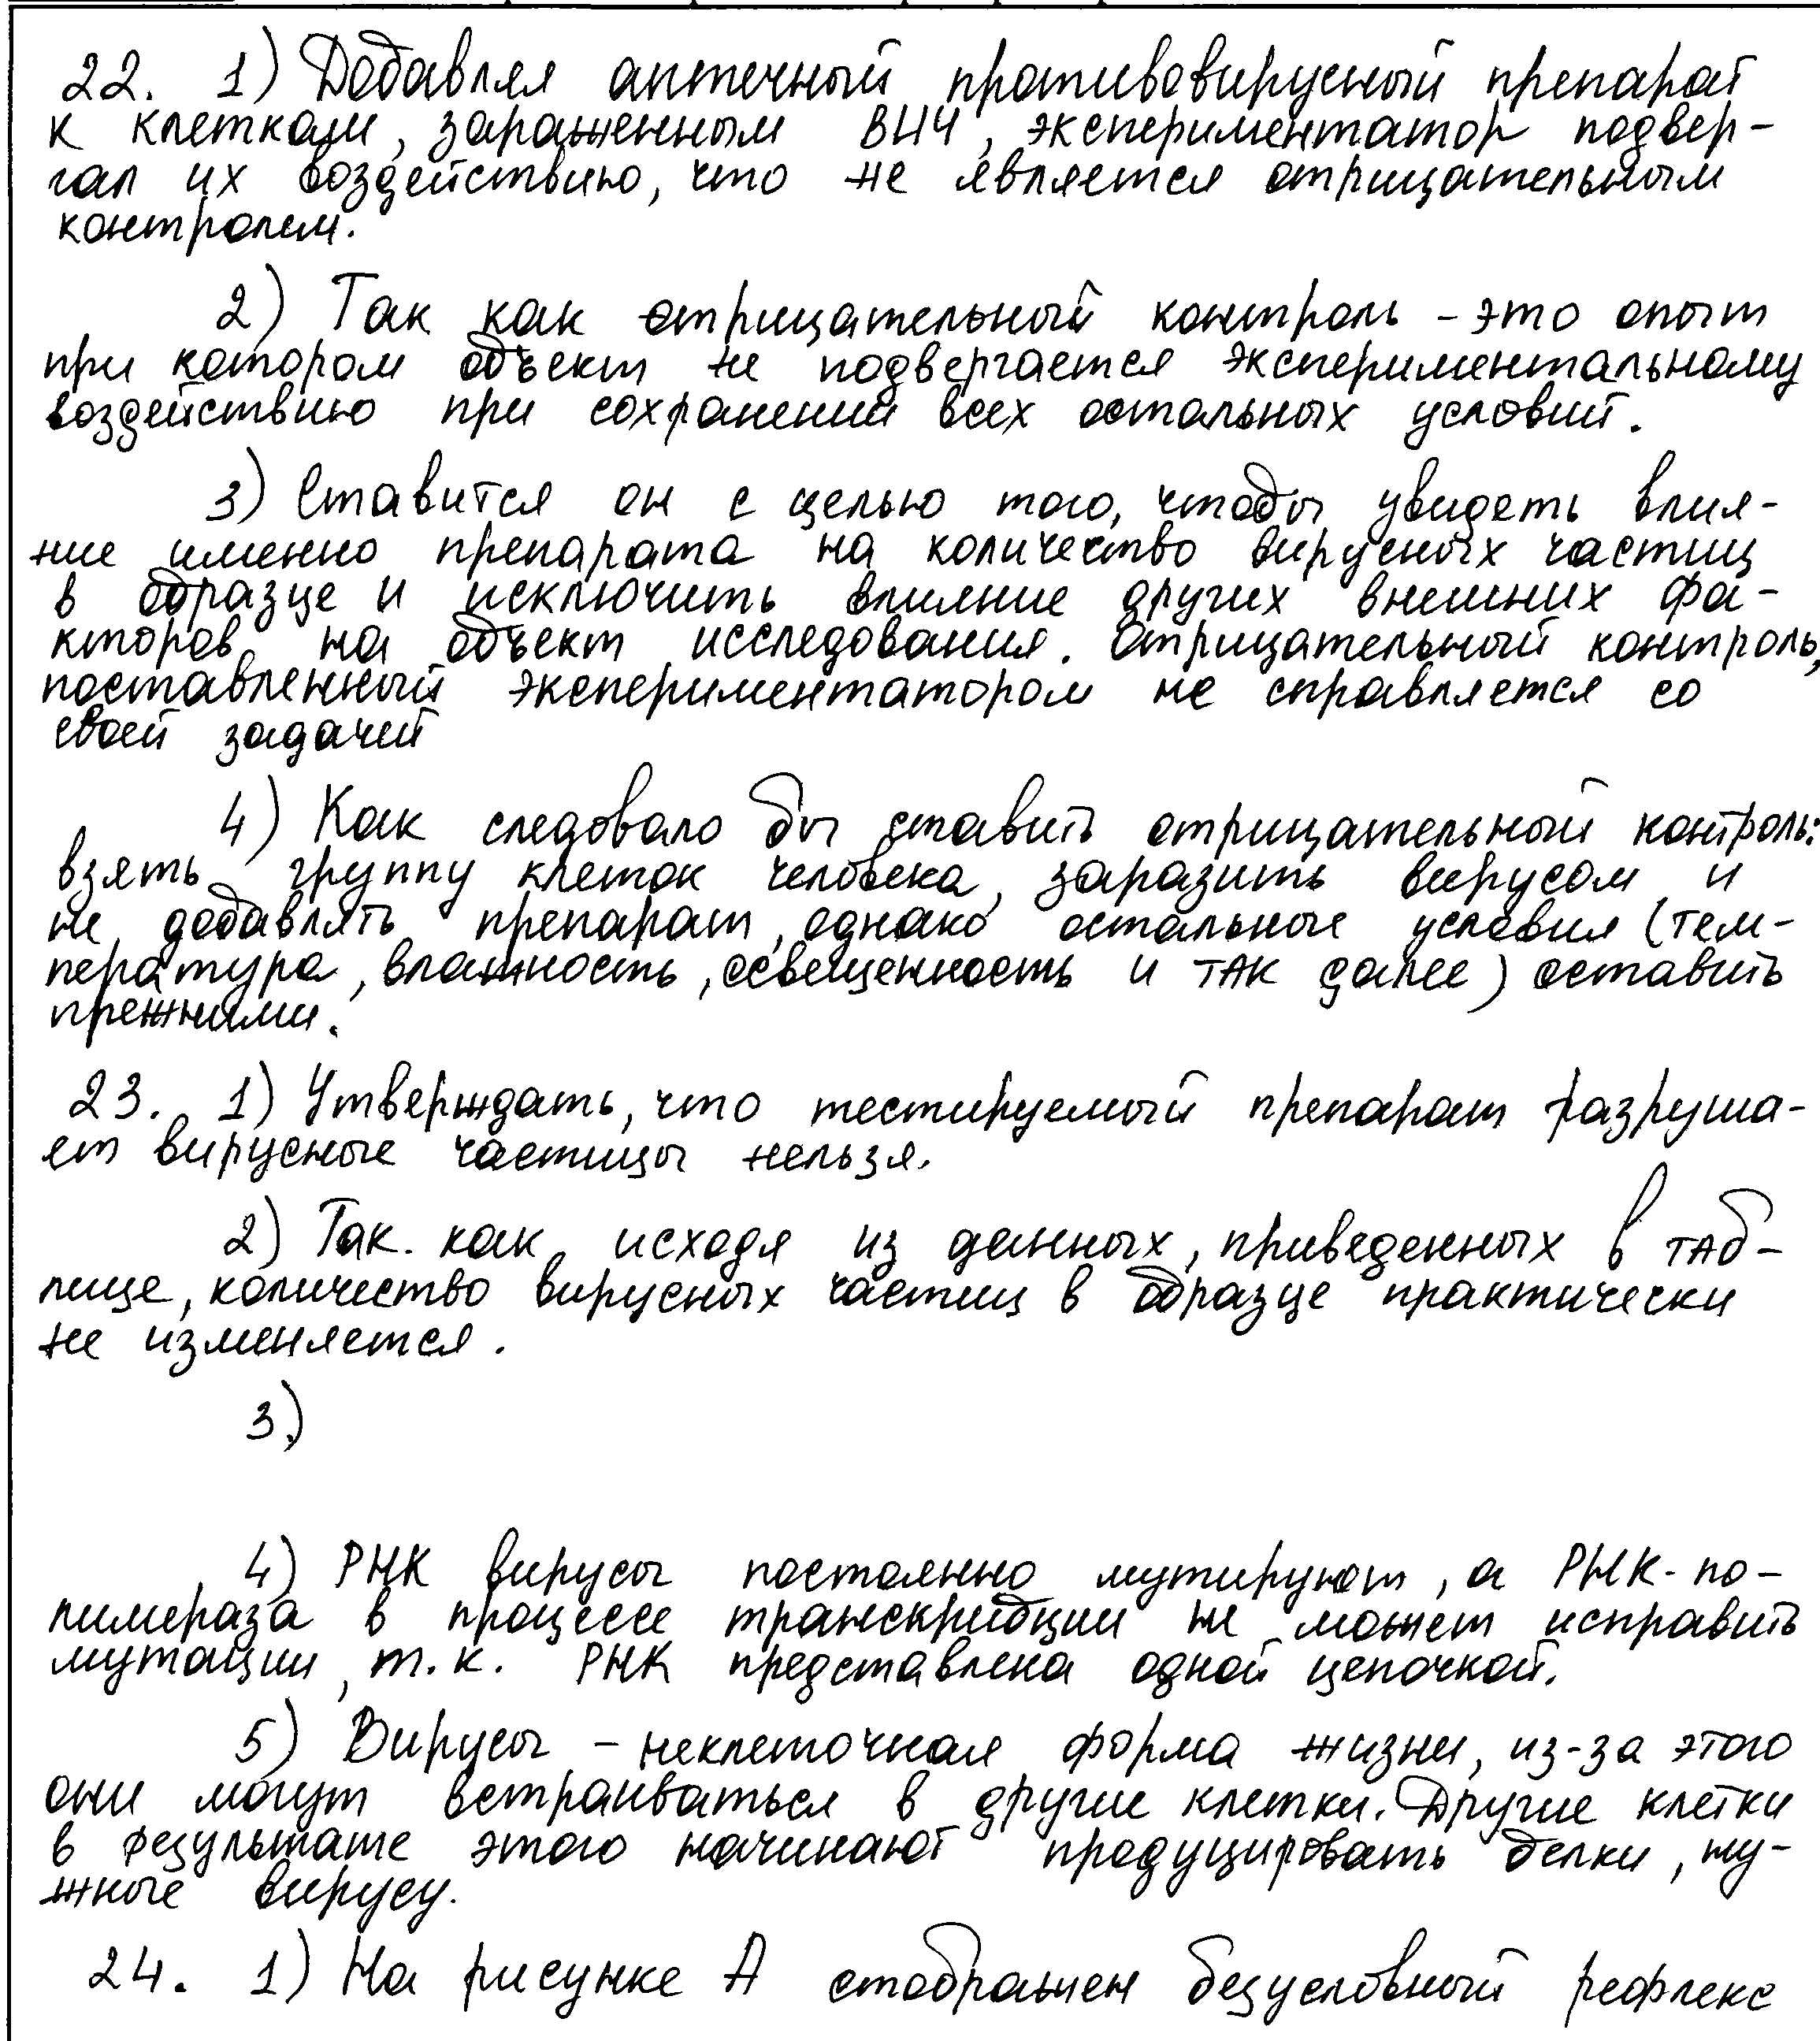 22. 1) Добавляя аптечный противовирусный препарат
к клеткам, зараженным ВИЧ, экспериментатор подвер-
гал их воздействию, что не является отрицательным
контролем.
2) Так как отрицательный контроль - это опыт
при котором объект не подвергается экспериментальному
воздействию при сохранении всех остальных условий.
3) Ставится он с целью того, чтобы увидеть влия-
ние именно препарата на количество вирусных частиц
в образце и исключить влияние других внешних фа-
кторов на объект исследования. Отрицательный контроль,
поставленный экспериментатором не справляется со
своей задачей
4) Как следовало бы ставить отрицательный контроль:
взять группу клеток человека, заразить вирусом и
не добавлять препарат, однако остальные условия (тем-
пература, влажность, освещенность и так далее) оставить
прежними.
23. 1) Утверждать, что тестируемый препарат разруша-
ет вирусные частицы нельзя.
2) Так. как исходя из данных, приведенных в таб-
лице, количество вирусных частиц в образце практически
не изменяется.
3)
4) РНК вирусы постоянно мутируют, а РНК-по-
лимераза в процессе транскрибции не может исправить
мутации, т.к. РНК представлена одной цепочкой.
5) Вирусы - неклеточная форма жизни, из-за этого
они могут встраиваться в другие клетки. Другие клетки
в результате этого начинают продуцировать белки, ну-
жные вирусу.
24. 1) На рисунке А отображен безусловный рефлекс